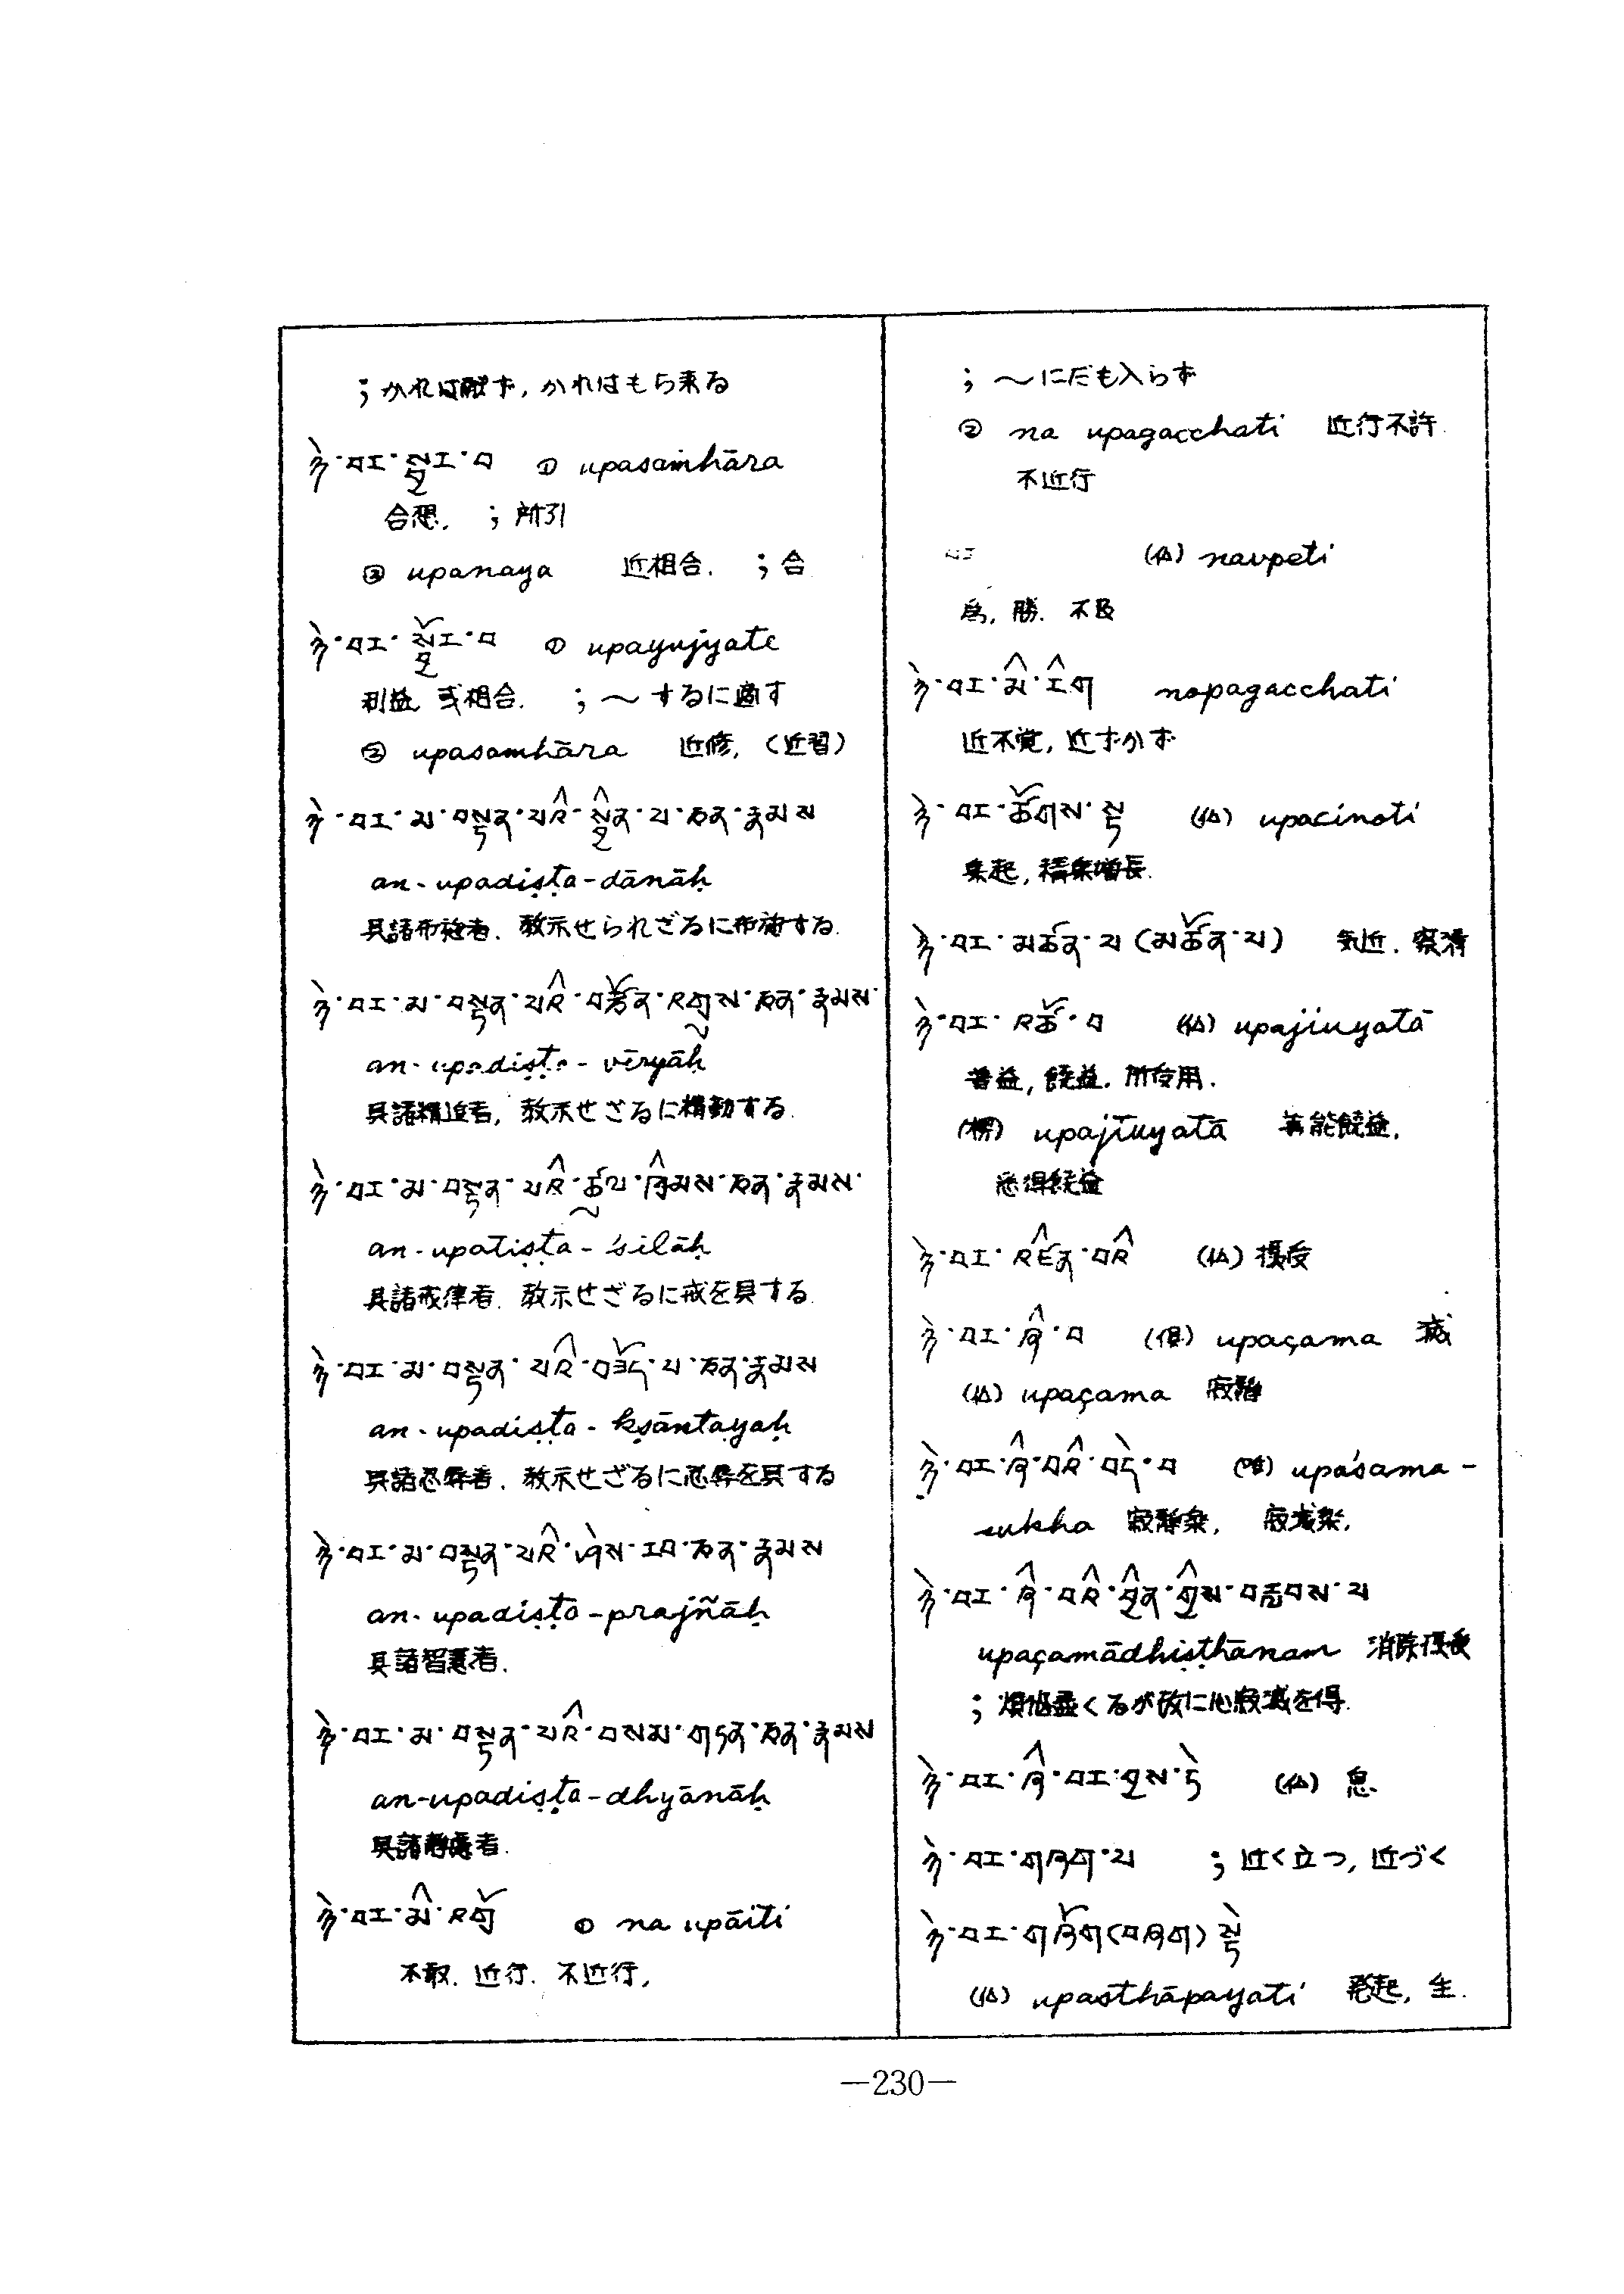 ；かれは献ず，かれはもち来る
ཉེ་བར་སྦྱར་བ ① upasaṁhāra
合想． ；所引
② upanaya 近相合． ；合
ཉེ་བར་སྦྱོར་བ ① upayujyate
利益 或相合． ；〜するに適す
② upasaṃhāra 近修，（近習）
ཉེ་བར་མ་བསྟན་པའི་སྦྱིན་པ་ཅན་རྣམས
an-upadiṣṭa-dānāḥ
具諸布施者．教示せられざるに布施する．
ཉེ་བར་མ་བསྟན་པའི་བརྩོན་འགྲུས་ཅན་རྣམས་
an-upadiṣṭa-vēryāḥ
具諸精進者，教示せざるに精勤する．
ཉེ་བར་མ་བསྟན་པའི་ཚུལ་ཁྲིམས་ཅན་རྣམས་
an-upatiṣṭa-'silāḥ
具諸戒律者．教示せざるに戒を具する．
ཉེ་བར་མ་བསྟན་པའི་བཟོད་པ་ཅན་རྣམས
an-upadiṣṭa-kṣāntayaḥ
具諸忍辱者．教示せざるに忍辱を具する
ཉེ་བར་མ་བསྟན་པའི་ཤེས་རབ་ཅན་རྣམས
an-upadiṣṭa-prajñāḥ
具諸智慧者．
ཉེ་བར་མ་བསྟན་པའི་བསམ་གཏན་ཅན་རྣམས
an-upadiṣṭa-dhyānāḥ
具諸静慮者．
ཉེ་བར་མི་འགྲོ ① na upāiti
不取．近行．不近行，
；〜にだも入らず
② na upagacchati 近行不許．
不近行
བར (仏) naupeti
為，勝．不及
ཉེ་བར་མི་རིག nopagacchati
近不覚，近ずかず
ཉེ་བར་ཚོགས་སྟ (仏) upacinoti
集起，積集増長．
ཉེ་བར་མཚན་པ (མཚོན་པ) 気近．
ཉེ་བར་འཚོ་བ (仏) upajiuyatā
普益，饒益．所受用．
upajīuyatā 善能饒益，
悉得饒益
ཉེ་བར་འཛིན་བའི (仏) 摂受
ཉེ་བར་ཞི་བ (倶) upaçama 滅
(仏) upaçama 寂静
ཉེ་བར་ཞི་བའི་བདེ་བ (唯) upaśama-
sukha 寂静楽， 寂滅楽，
ཉེ་བར་ཞི་བའི་བྱིན་གྱིས་བརླབས་པ
upaçamādhiṣṭhānam
；煩悩盡くるが故に心寂滅を得．
ཉེ་བར་ཞི་བར་བྱས་ཏེ (仏) 息
ཉེ་བར་གཞག་པ ；近く立つ，近づく
ཉེ་བར་གཞོག(བཞག)སྟེ
(仏) upasthāpayati 発起，生．
—230—